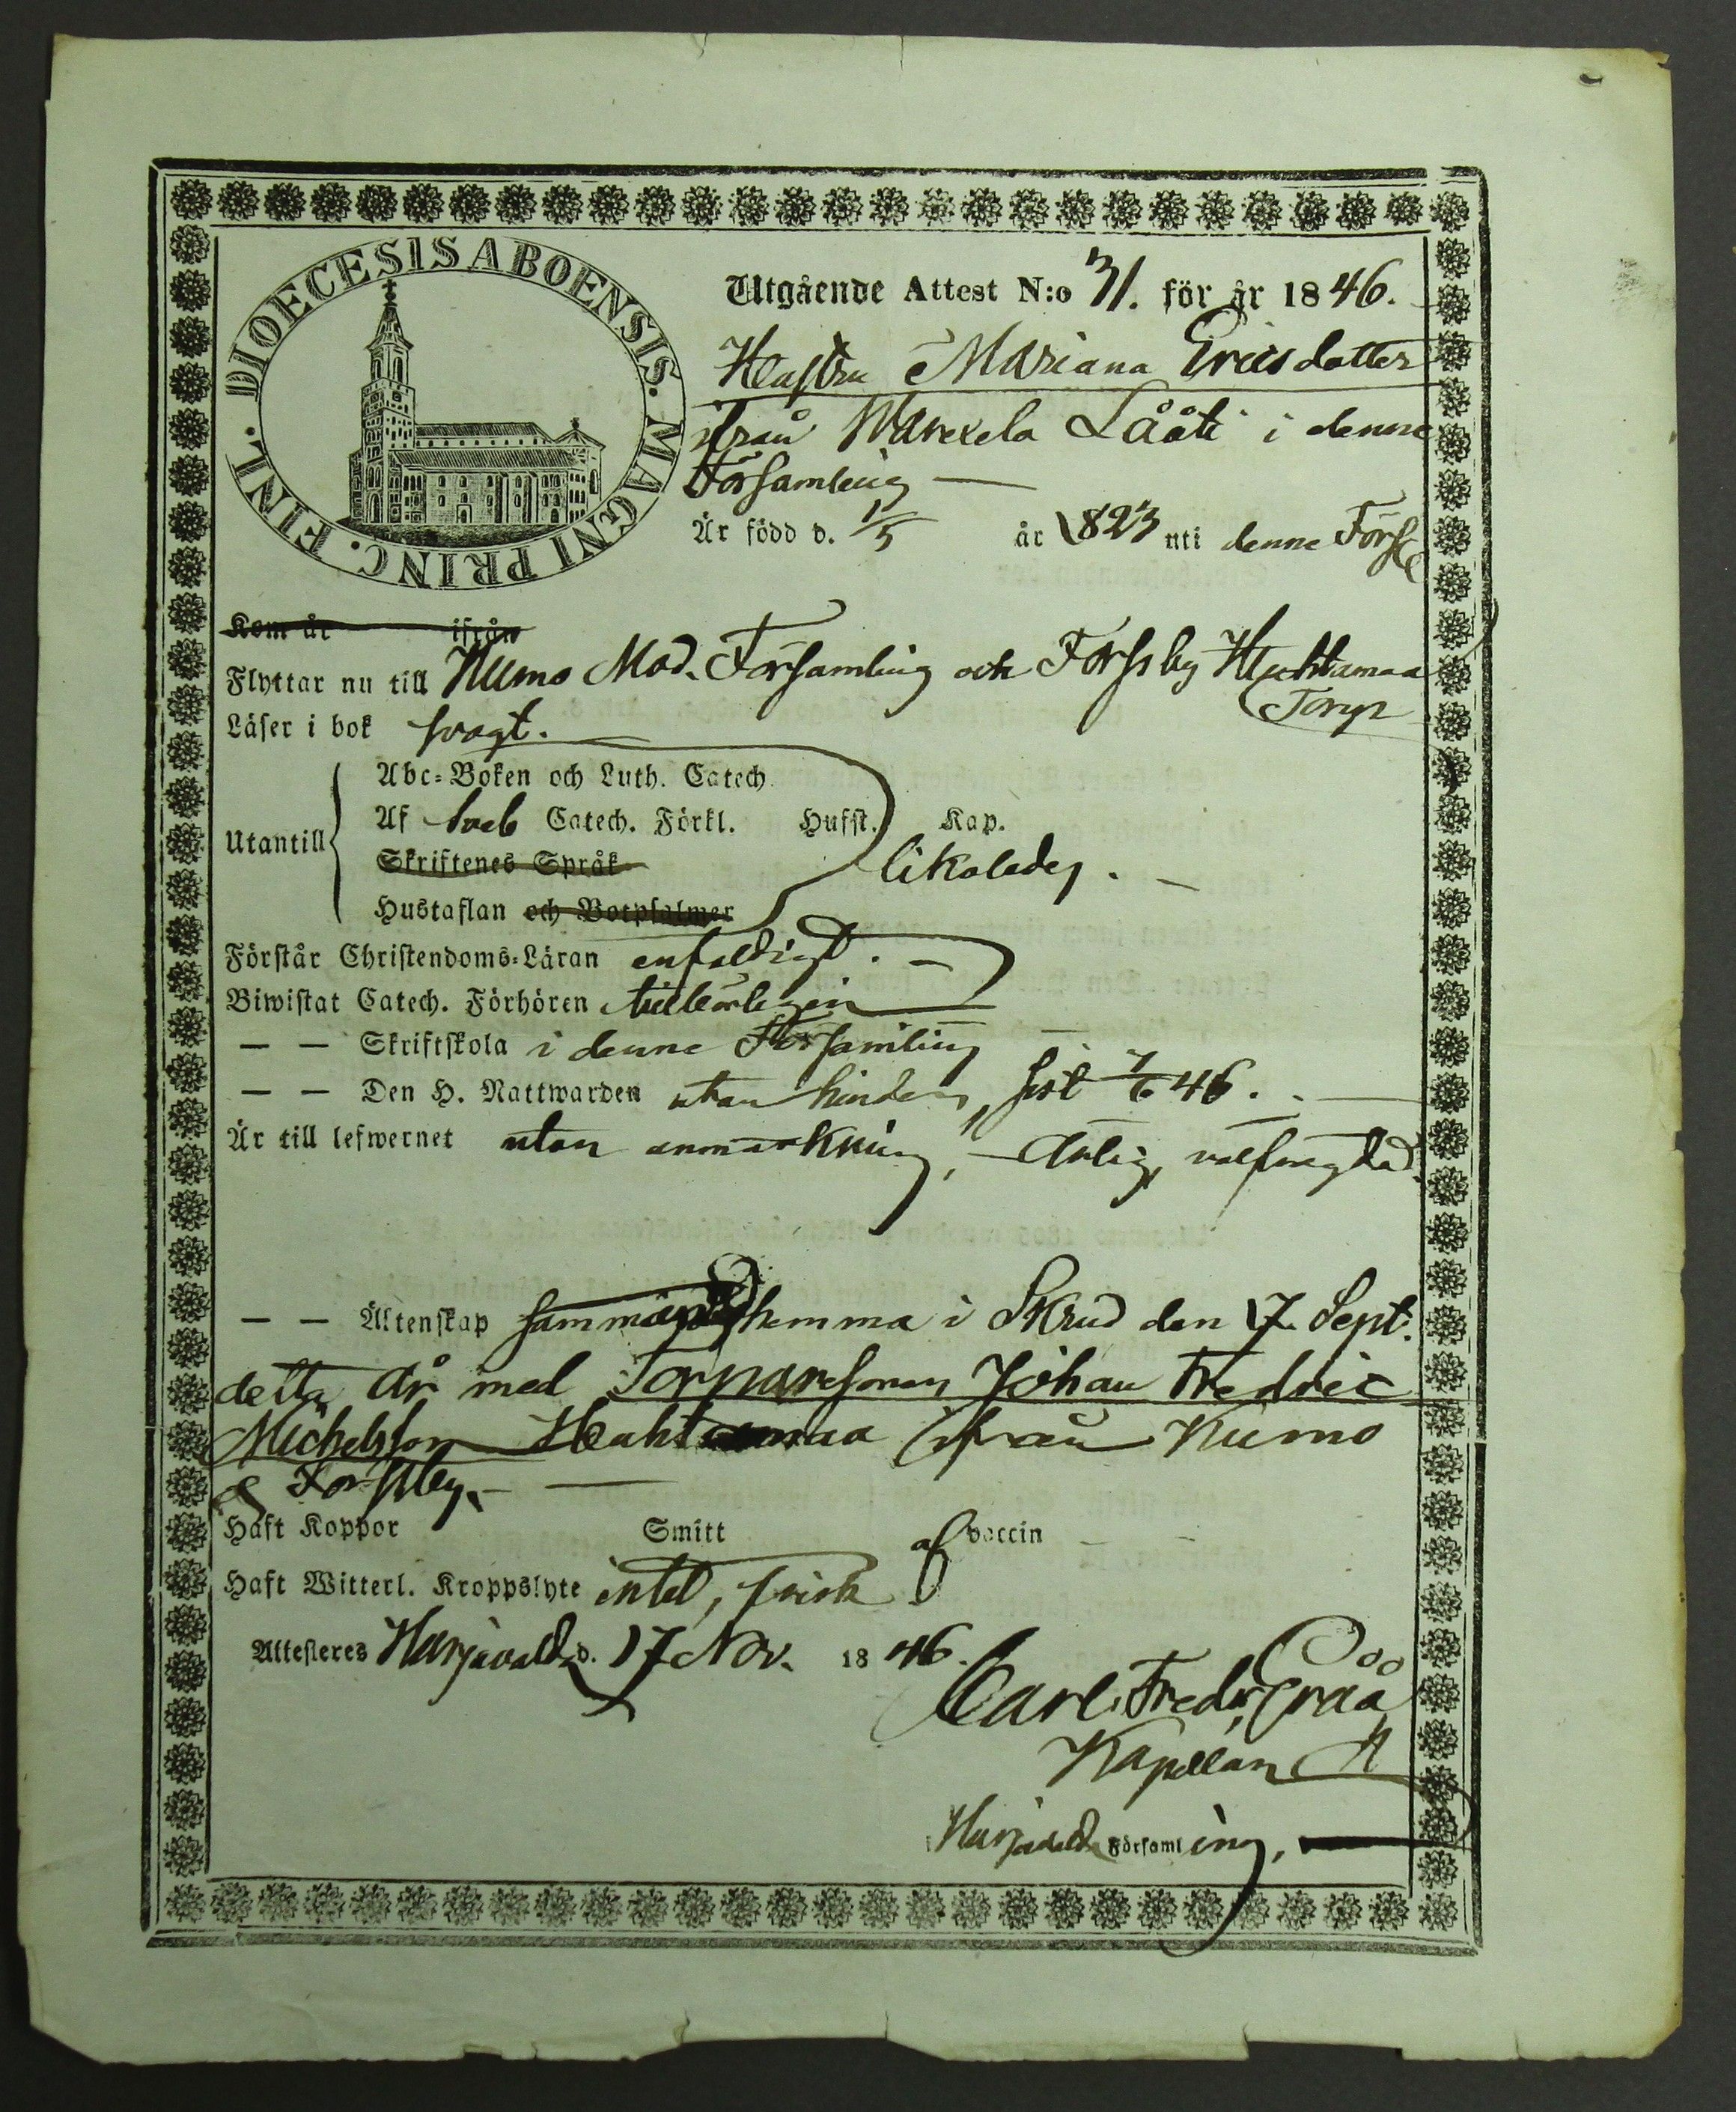 DIOECESIS ABOENSIS. MAGNI PRINC. FINL.
Utgående Attest N:o 31. för år 1846.
Hustru Mariana Ericsdotter
ifrån Warexela Lååti i denna
Församling
Är född d. 1/5 år 1823 uti denne Förs
Kom år ifrån
Flyttar nu till Kumo Mod. Församling och Forssby Huhtamaa
Torp
Läser i bok svagt.
Abc-Boken och Luth. Catech.
Utantill Af Sveb Catech. Förkl. Hufst. Kap.
Skriftenes Språk likaledes.
Hustaflan och Botpsalmer
Förstår Christendoms-Läran enfaldigt.
Biwistat Catech. Förhören
— — Skriftskola i denne Församling
— — Den H. Nattwarden utan hinder, sist 7/6 46.
Är till lefwernet utan anmärkning, – ärlig, välfrägdad.
— — Äktenskap hemma i Skrud den 17 Sept.
detta År med Torparesonen Johan Fredric
Michelsson Huhtamaa ifrån Kumo
& Forssby.
Haft Koppor Smitt af vaccin
Haft Witterl. Kroppslyte intet, frisk
Attesteras Harjavalda d. 17 Nov. 1846.
Carl Fredr. Gråå
Kapellan
i Harjavalda Församling.